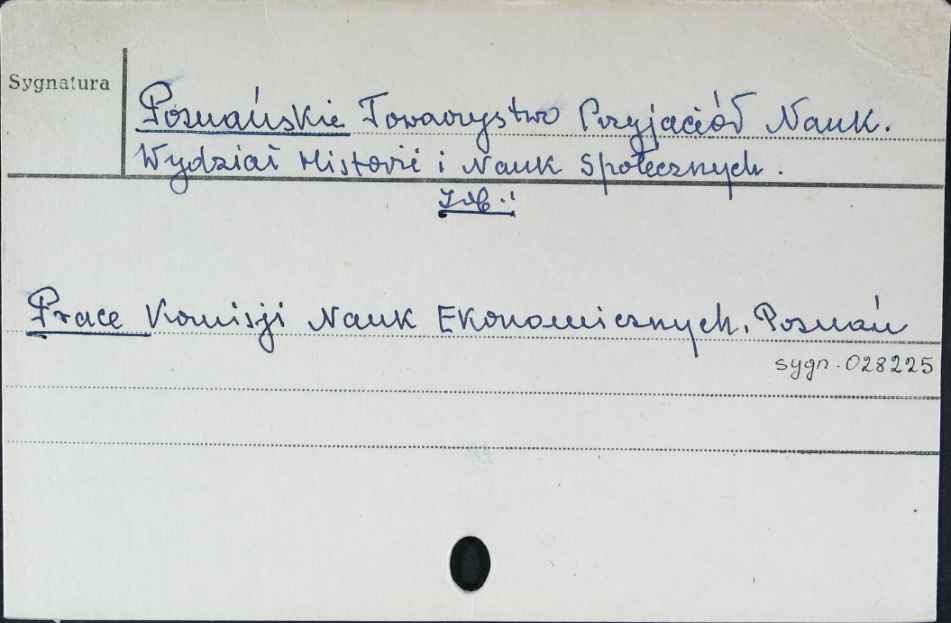 Sygnatura
Poznańskie Towarzystwo Przyjaciół Nauk.
Wydział Historii i Nauk Społecznych.
Zob.:
Prace Komisji Nauk Ekonomicznych. Poznań
sygn. 028225